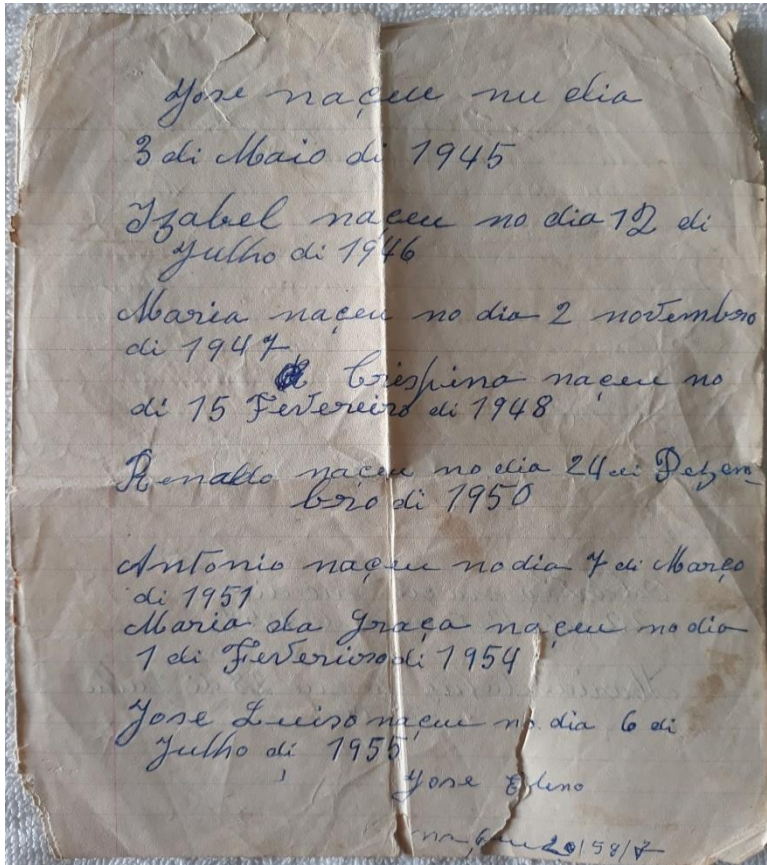 Jose naçeu nu dia
3 di Maio di 1945
Izabel naçeu no dia 12 di
Julho di 1946
Maria naçeu no dia 2 novembro
di 1947
Crispina naçeu no
di 15 Fevereiro di 1948
Renaldo naçeu no dia 24 di Dezem-
bro di 1950
Antonio naçeu no dia 7 di Março
di 1951
Maria da Graça naçeu no dia
1 di Feverioro di 1954
Jose Luiso naçeu no dia 6 di
Julho di 1955
Jose